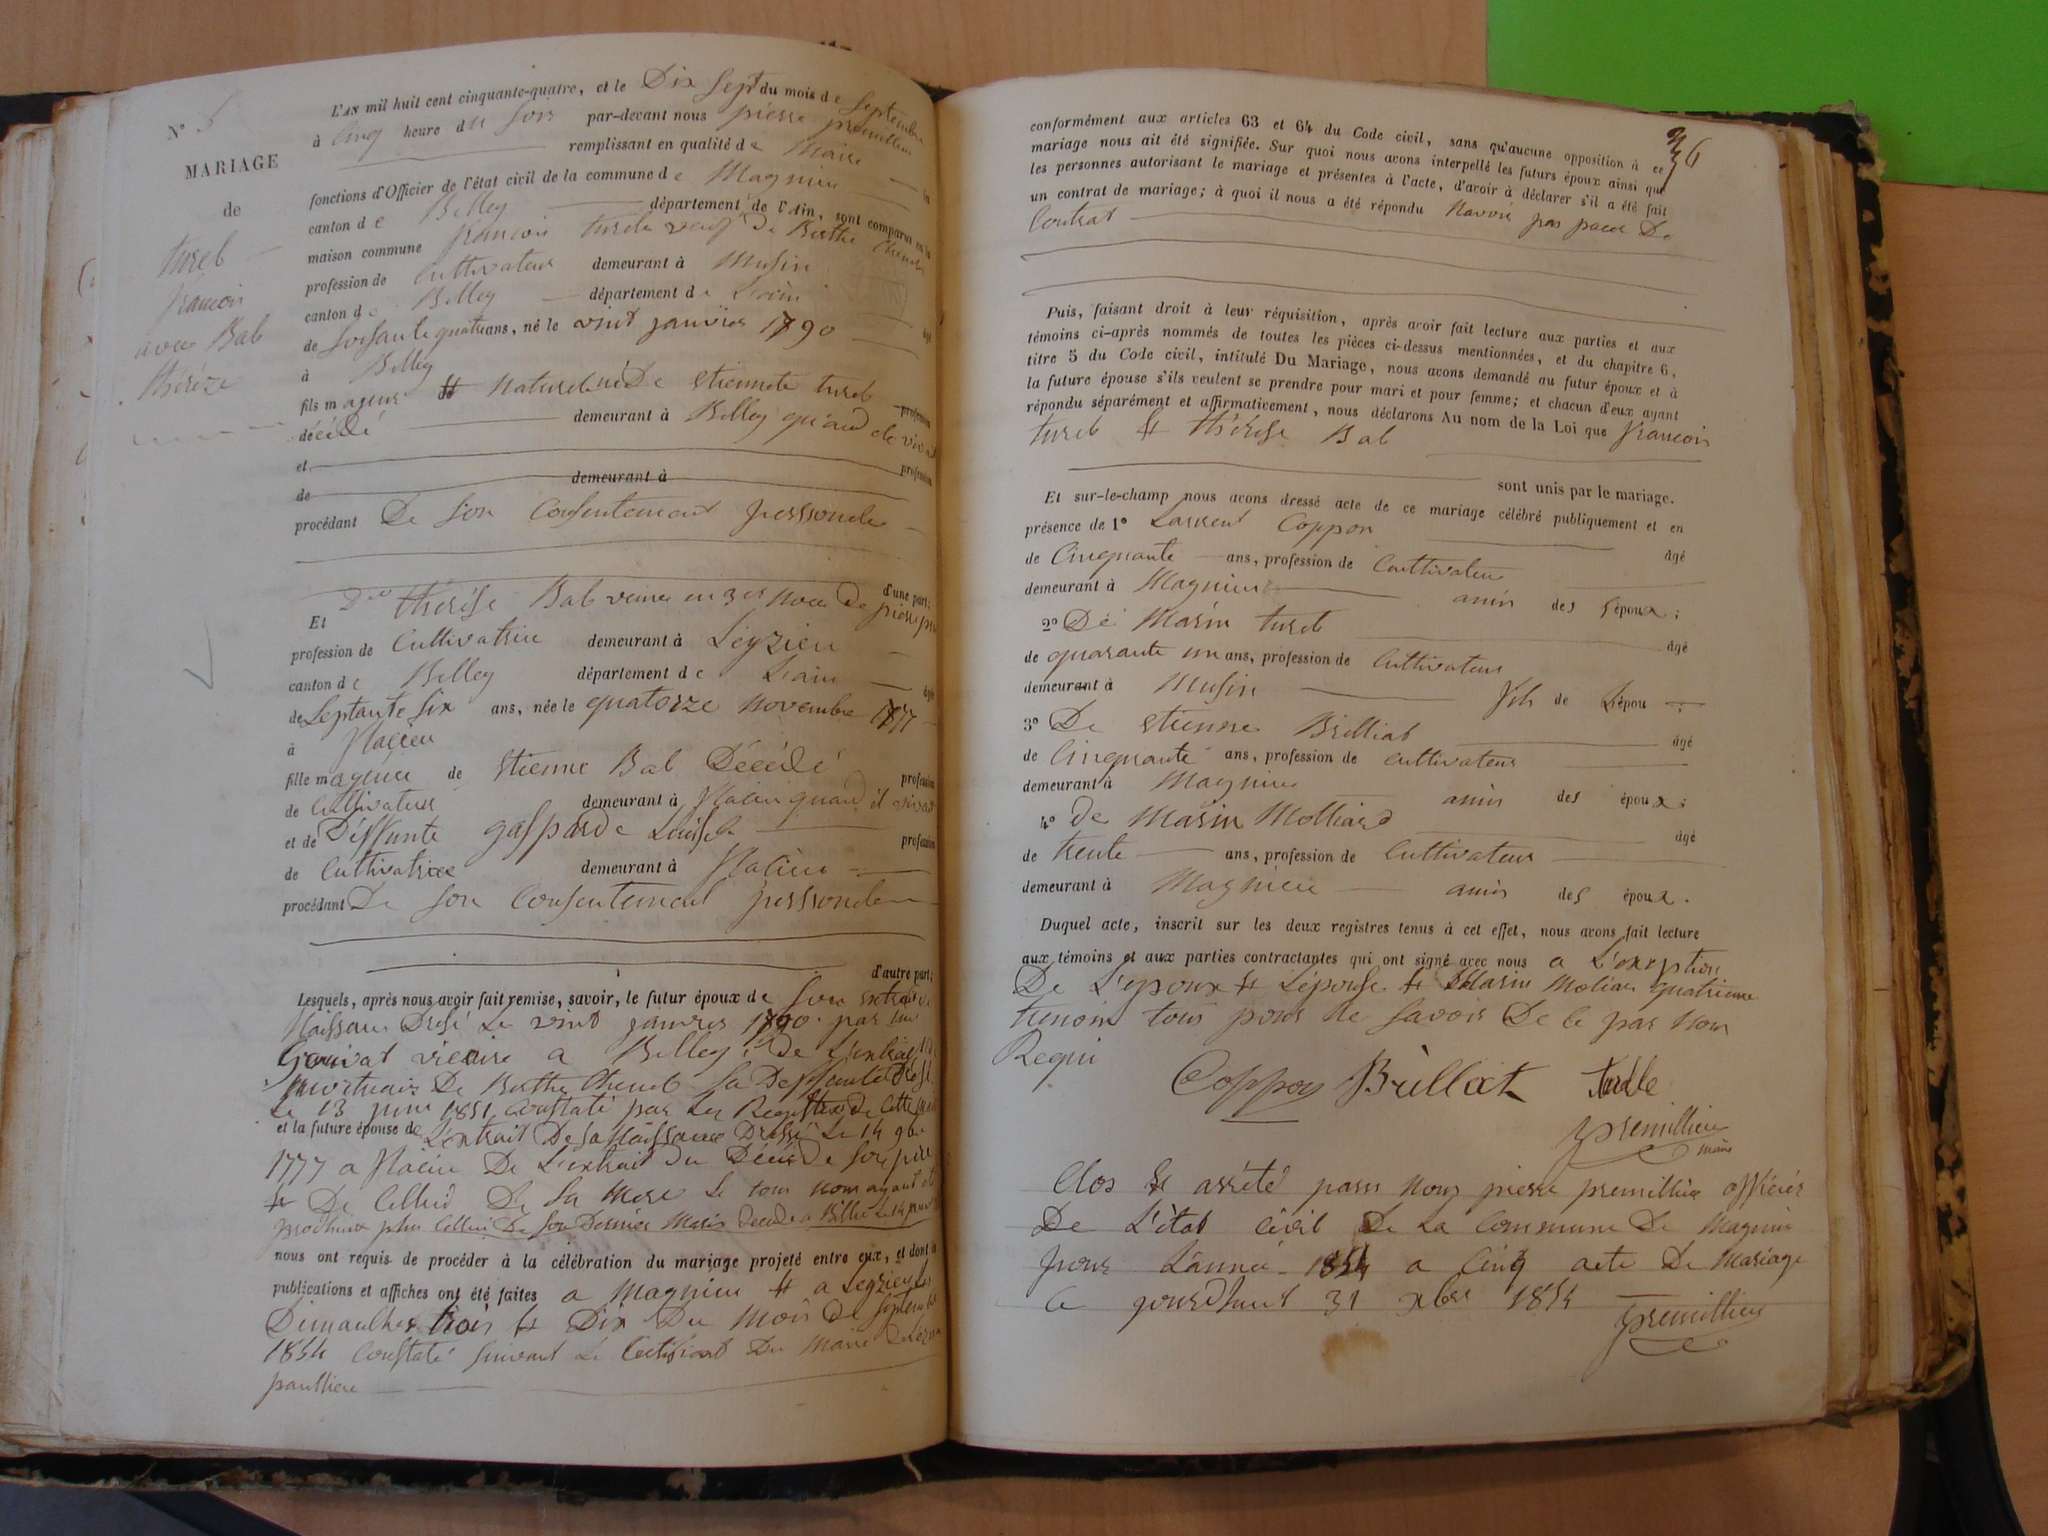 N° 5
MARIAGE
de
turel
francois
avec Bal
thérèze
L'AN mil huit cent cinquante-quatre, et le Dix Sept du mois de Septembre
à Cinq heure du Soir par-devant nous pierre premillieu
remplissant en qualité de Maire les
fonctions d'Officier de l'état civil de la commune de Magnieu
canton de Belley département de l'Ain, sont comparus en la
maison commune francois turel veuf de Berthe
profession de Cultivateur demeurant à Musin
canton de Belley département de Lain âgé
de Soisante quatre ans, né le vint janvier 1790
à Belley
fils mageur Naturel né De etiennete turel profession
décédé demeurant à Belley qu'and ele vivait
et profession
de demeurant à
procédant De Son Consentement perssonele
d'une part;
Et Dee thérèse Bal veuve en 3es Noce De pierre
profession de Cultivatrice demeurant à Leyzieu
canton de Belley département de Lain âgé
de Septante Six ans, née le quatorze Novembre 1777
à Nacieu
fille mageure de etienne Bal Décédé profession
de Cultivateur demeurant à Nacieu quand il vivait
et de Déffunte gasparde profession
de Cultivatrice demeurant à Nacieu
procédant De Son Consentement perssonele
d'autre part;
Lesquels, après nous avoir fait remise, savoir, le futur époux de Son extrait De
Naissance Dresé Le vint janvier 1790 par
vicaire a Belley; De L'extrait
mortuair De Berthe Sa Deffunte Dresé
Le 13 juin 1851 Constaté par Les Registres de Cette
et la future épouse de L'extrait De Sa Naissance Dressé Le 14 9bre
1777 a Nacieu De L'extrait du Décès de Son père
et De Cellui De Sa Mere Le tout nous ayant été
plus Cellui De Son Dernier Maris Decede a
nous ont requis de procéder à la célébration du mariage projeté entre eux, et dont les
publications et affiches ont été faites a Magnieu et a Leyzieu les
Dimanches trois et Dix Du Mois de Septembre
1854 Constaté Suivant Le Certificat Du Maire
36
conformément aux articles 63 et 64 du Code civil, sans qu'aucune opposition à ce
mariage nous ait été signifiée. Sur quoi nous avons interpellé les futurs époux ainsi que
les personnes autorisant le mariage et présentes à l'acte, d'avoir à déclarer s'il a été fait
un contrat de mariage; à quoi il nous a été répondu Navoir pas passé De
Contrat
Puis, faisant droit à leur réquisition, après avoir fait lecture aux parties et aux
témoins ci-après nommés de toutes les pièces ci-dessus mentionnées, et du chapitre 6,
titre 5 du Code civil, intitulé Du Mariage, nous avons demandé au futur époux et à
la future épouse s'ils veulent se prendre pour mari et pour femme; et chacun d'eux ayant
répondu séparément et affirmativement, nous déclarons Au nom de la Loi que francois
turel et thérèse Bal
sont unis par le mariage.
Et sur-le-champ nous avons dressé acte de ce mariage célébré publiquement et en
présence de 1° Laurent Coppon âgé
de Cinquante ans, profession de Cultivateur
demeurant à Magnieu amis des époux;
2° De Marin turel âgé
de quarante un ans, profession de Cultivateur
demeurant à Musin fils de Lépou ;
3° De etienne Brilliat âgé
de Cinquante ans, profession de Cultivateur
demeurant à Magnieu amis des époux;
4° de Marin Molliard âgé
de trente ans, profession de Cultivateur
demeurant à Magnieu amis des époux.
Duquel acte, inscrit sur les deux registres tenus à cet effet, nous avons fait lecture
aux témoins et aux parties contractantes qui ont signé avec nous a L'exception
De L'epoux et L'épouse et Marin Moliar quatrieme
temoin tous pour ne Savoir De ce par Nous
Requi
Coppon Brillat Turelle
premillieu
maire
Clos et arrété par Nous pierre premillieu officiér
De L'état Civil De La Commune De Magnieu
pour Lannée 1854 a Cinq acte De Mariage
Ce jourdhuit 31 xbre 1854
premillieu